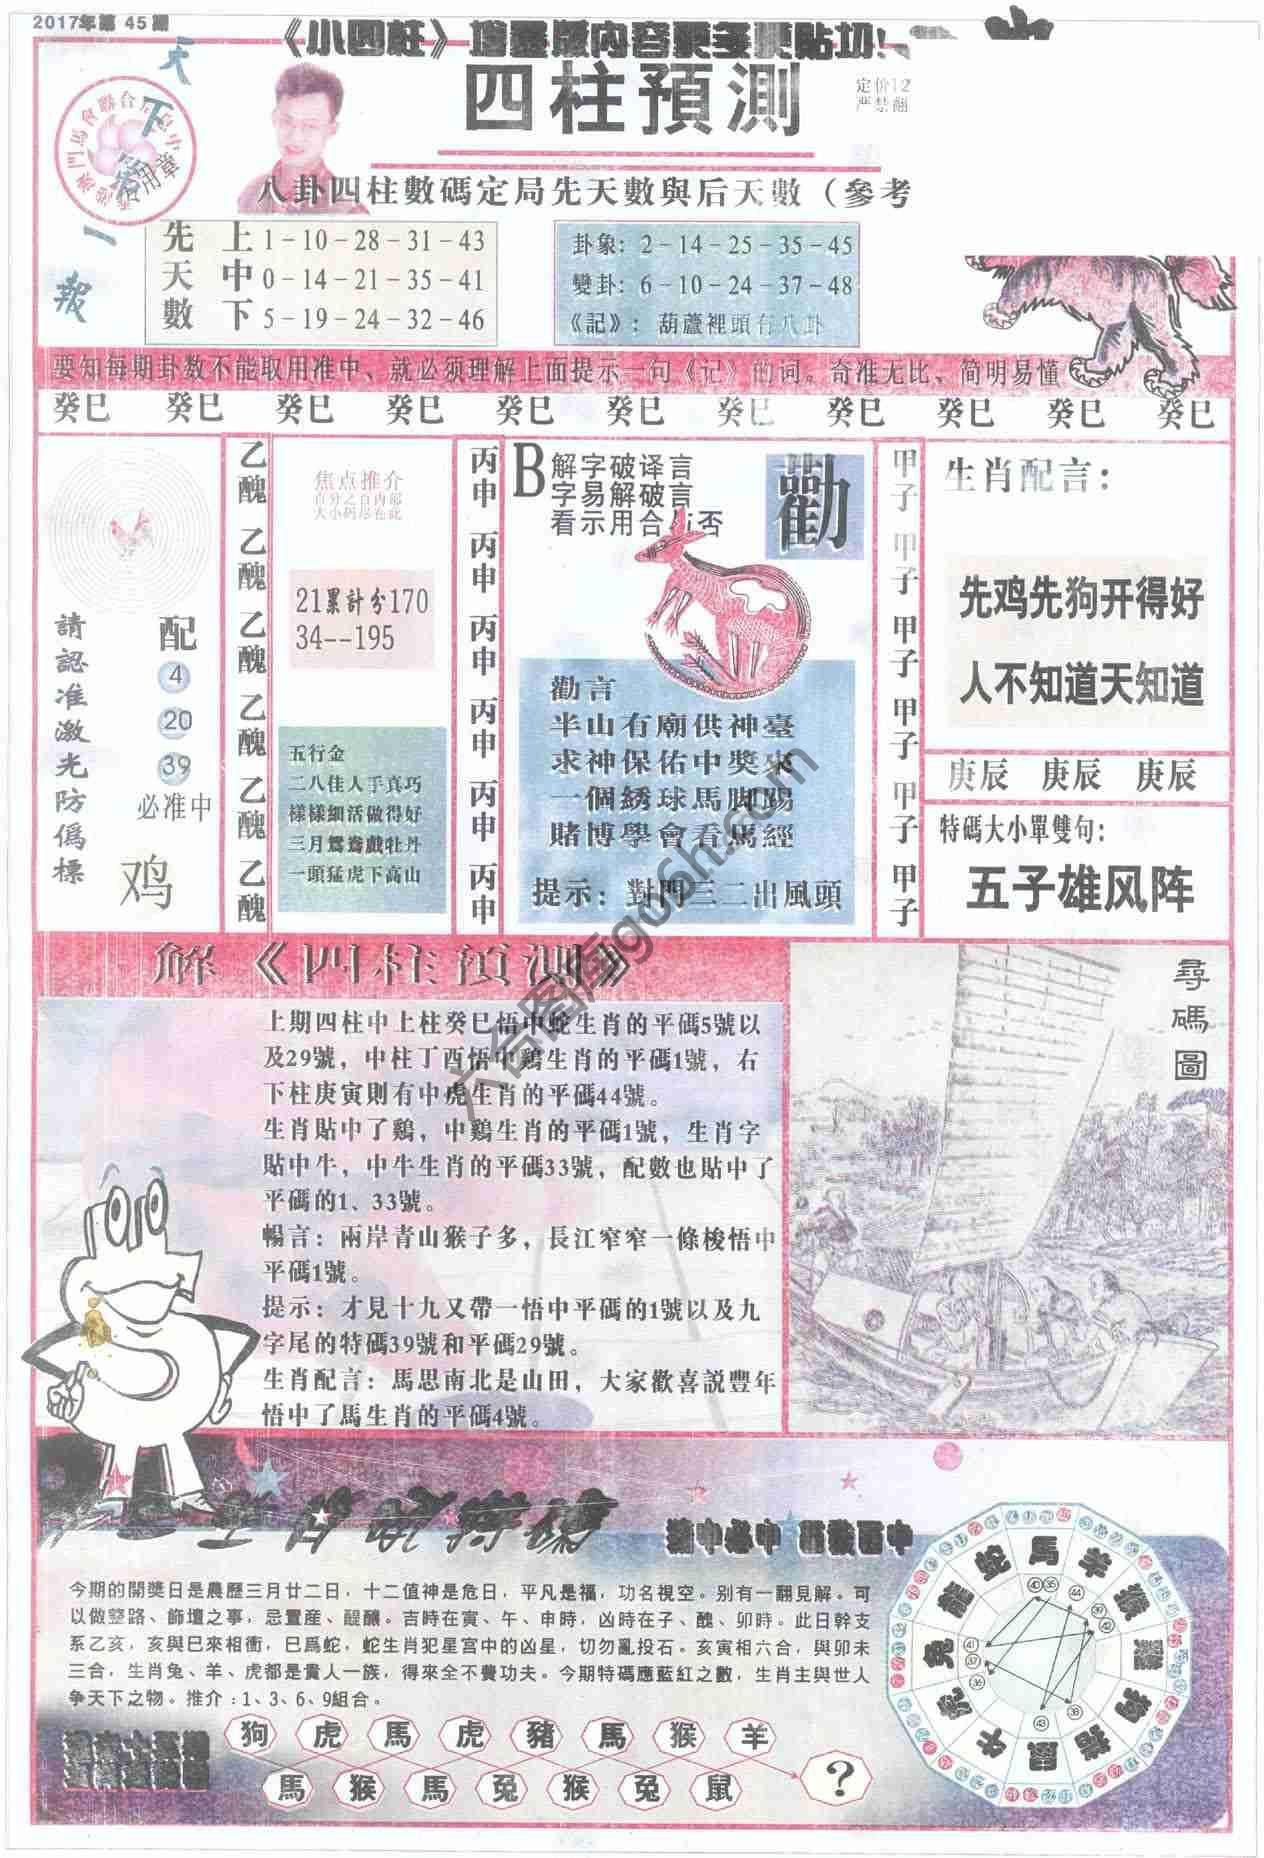 2017年第 45 期
《小四柱》增疊版內容更多更貼切!
四柱預測
定价12
严禁翻
天下第一報
八卦四柱數碼定局先天數與后天數（參考
先天數
上 1-10-28-31-43
中 0-14-21-35-41
下 5-19-24-32-46
卦象: 2-14-25-35-45
變卦: 6-10-24-37-48
《記》: 葫蘆裡頭有八卦
要知每期卦数不能取用准中、就必须理解上面提示一句《记》的词。奇准无比、简明易懂
癸巳 癸巳 癸巳 癸巳 癸巳 癸巳 癸巳 癸巳 癸巳 癸巳 癸巳
請認准激光防僞標
配
4
20
39
必准中
鸡
乙醜 乙醜 乙醜 乙醜 乙醜 乙醜
焦点推介
百分之百内部
大小码尽在此
21累計分170
34--195
五行金
二八佳人手真巧
樣樣細活做得好
三月鴛鴦戲牡丹
一頭猛虎下高山
丙申 丙申 丙申 丙申 丙申 丙申
B
解字破译言
字易解破言
看示用合与否
勸
勸言
半山有廟供神臺
求神保佑中獎來
一個綉球馬脚踢
賭博學會看馬經
提示: 對門三二出風頭
甲子 甲子 甲子 甲子 甲子 甲子
生肖配言:
先鸡先狗开得好
人不知道天知道
庚辰 庚辰 庚辰
特碼大小單雙句:
五子雄风阵
解《四柱預測》
上期四柱中上柱癸巳悟中蛇生肖的平碼5號以
及29號，中柱丁酉悟中鷄生肖的平碼1號，右
下柱庚寅則有中虎生肖的平碼44號。
生肖貼中了鷄，中鷄生肖的平碼1號，生肖字
貼中牛，中牛生肖的平碼33號，配數也貼中了
平碼的1、33號。
暢言: 兩岸青山猴子多，長江窄窄一條梭悟中
平碼1號。
提示: 才見十九又帶一悟中平碼的1號以及九
字尾的特碼39號和平碼29號。
生肖配言: 馬思南北是山田，大家歡喜説豐年
悟中了馬生肖的平碼4號。
尋碼圖
今期的開獎日是農歷三月廿二日，十二值神是危日，平凡是福，功名視空。别有一翻見解。可
以做整路、飾壇之事，忌置産、醍釀。吉時在寅、午、申時，凶時在子、醜、卯時。此日幹支
系乙亥，亥與巳來相衝，巳爲蛇，蛇生肖犯星宫中的凶星，切勿亂投石。亥寅相六合，與卯未
三合，生肖兔、羊、虎都是貴人一族，得來全不費功夫。今期特碼應藍紅之數，生肖主與世人
争天下之物。推介:1、3、6、9組合。
狗 虎 馬 虎 豬 馬 猴 羊
馬 猴 馬 兔 猴 兔 鼠
?
馬 羊 猴 鷄 狗 猪 鼠 牛 虎 兔 龍 蛇
六合图库g06h.com